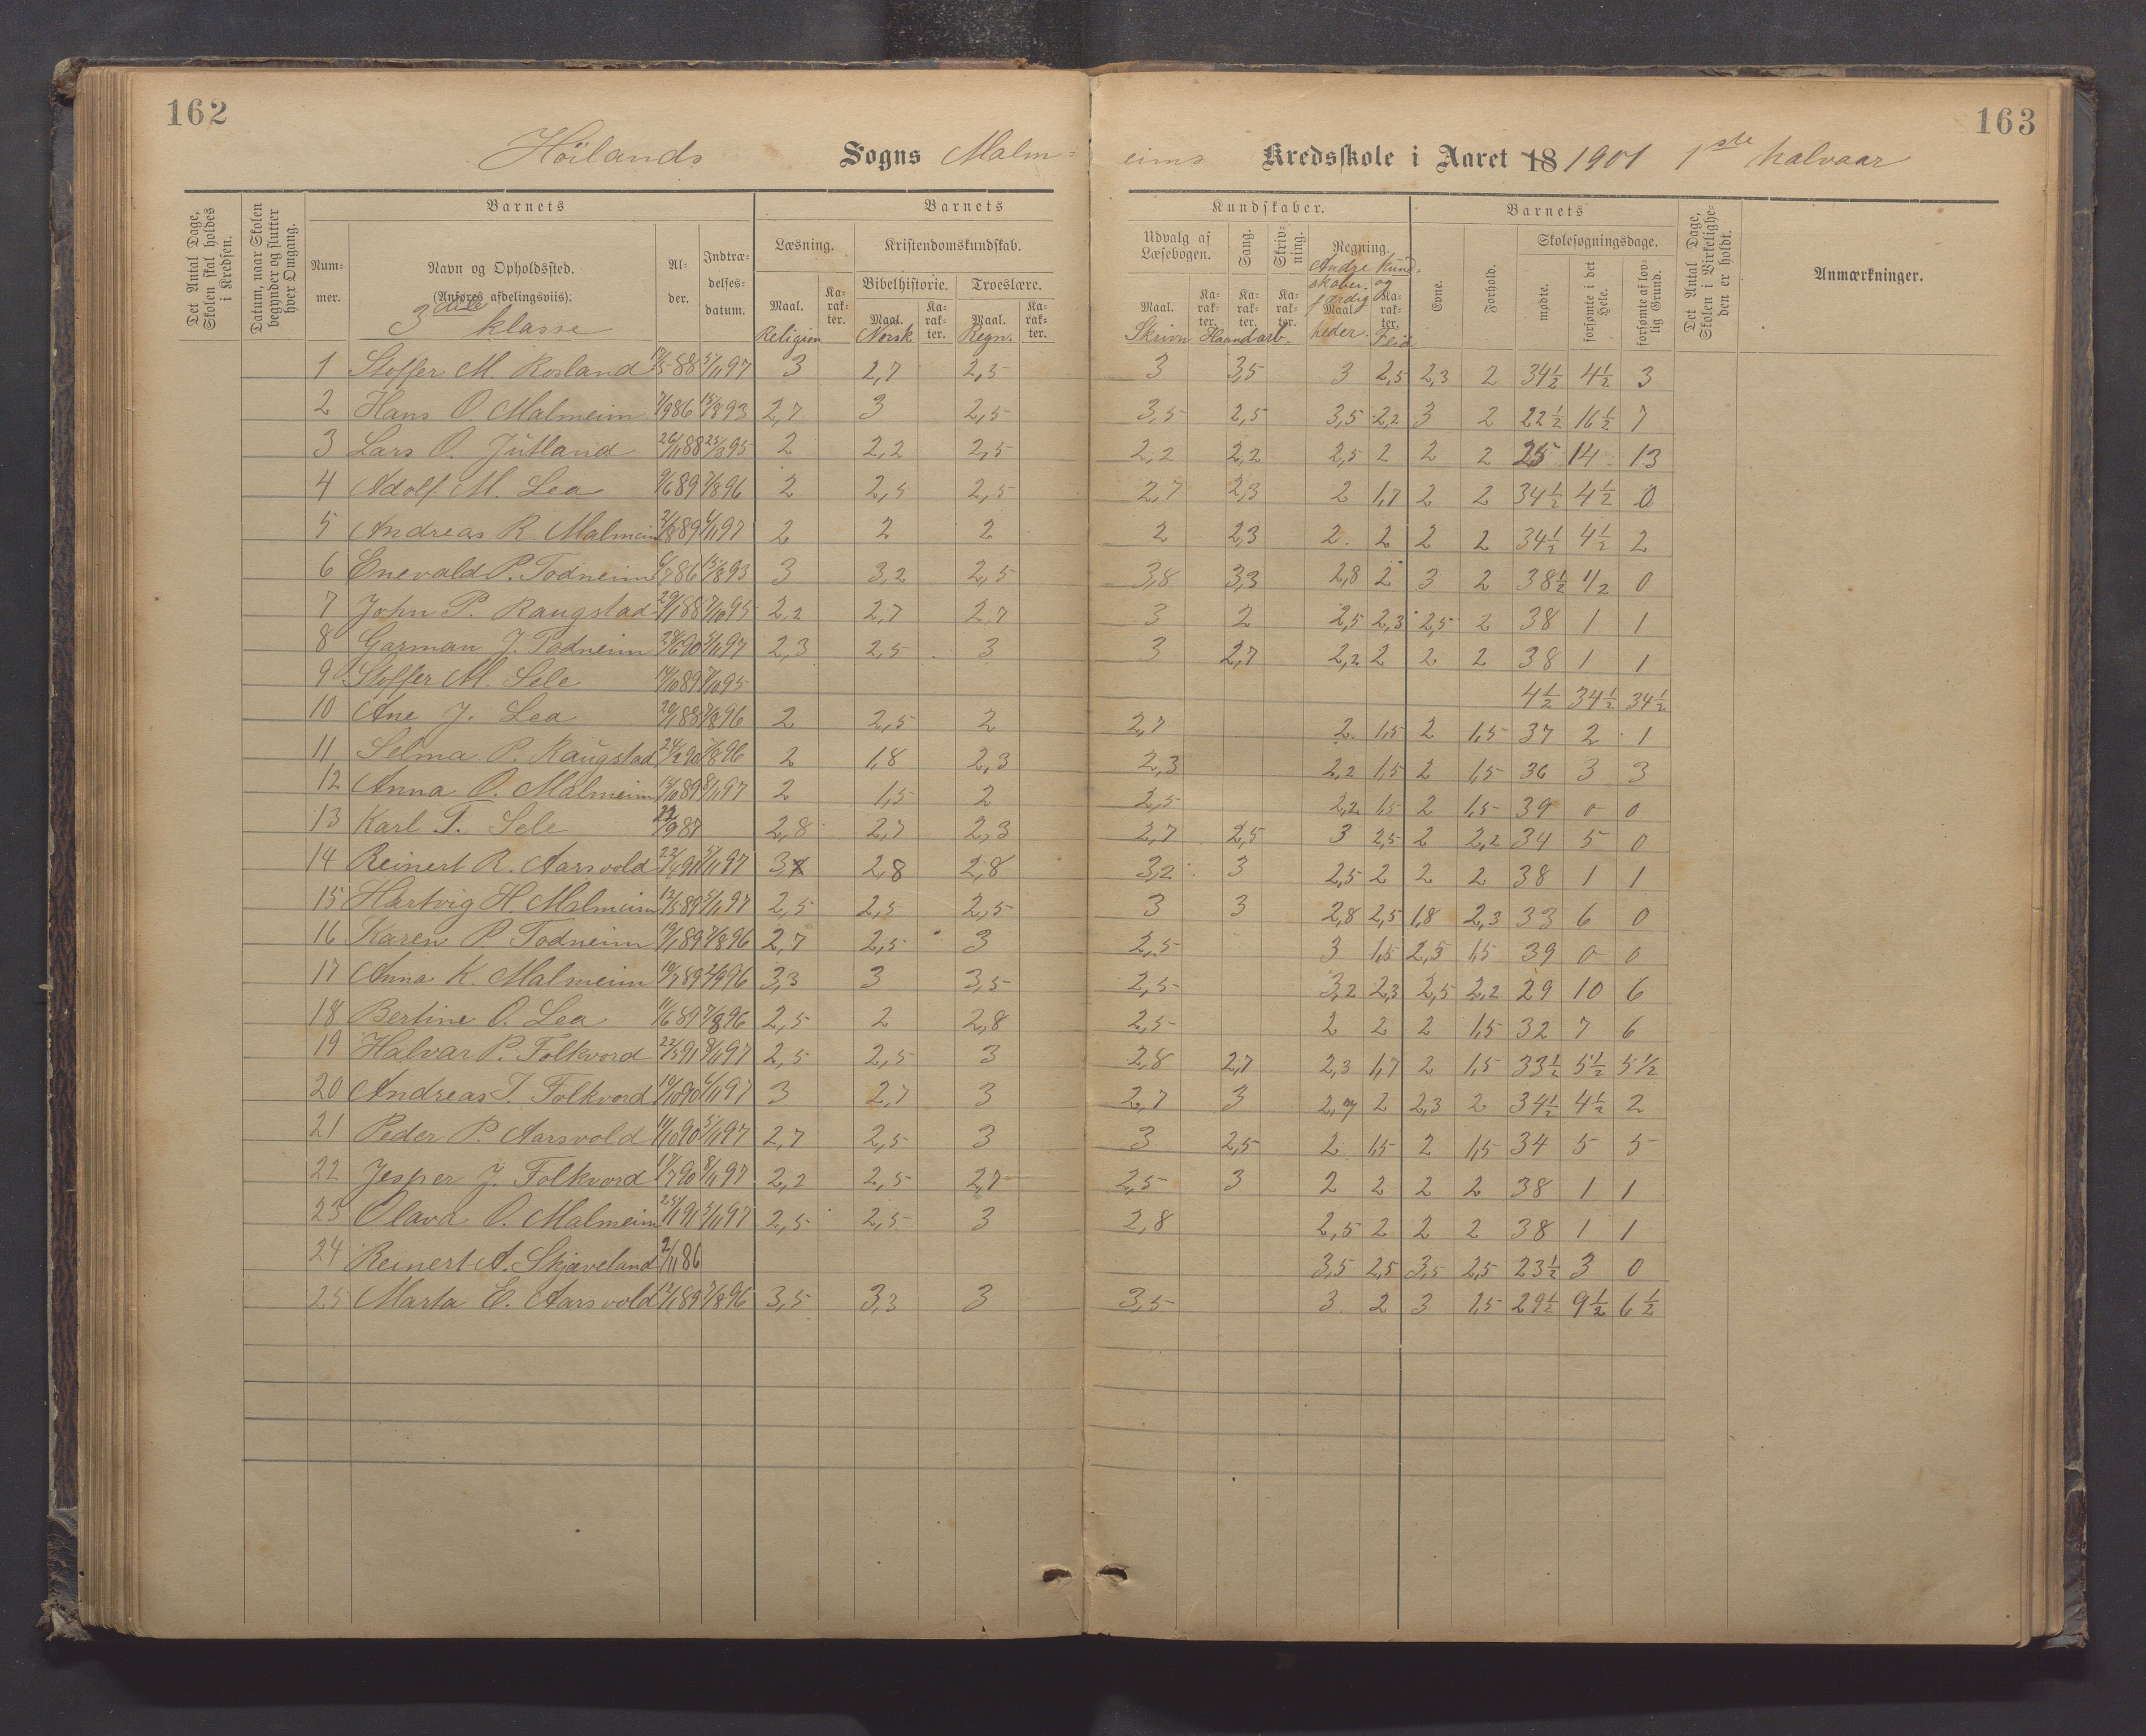 162
163
Höilands Sogns Malm- eims Kredsskole i Aaret 18 1901 1ste halvaar
Det Antal Dage, Skolen skal holdes i Kredsen.
Datum, naar Skolen begynder og slutter hver Omgang.
Barnets
Barnets
Kundskaber.
Barnets
Det Antal Dage, Skolen i Virkelighe- den er holdt.
Anmærkninger.
Num- mer.
Navn og Opholdssted.
(Anføres afdelingsviis).
3die klasse
Al- der.
Indtræ- delses- datum.
Læsning.
Kristendomskundskab.
Bibelhistorie. Troeslære.
Maal. Ka- rak- ter. Maal. Ka- rak- ter. Maal. Ka- rak- ter.
Religion Norsk Regn.
Udvalg af Læsebogen. Sang. Skriv- ning. Regning.
Andre kund- skaber og færdig heder.
Maal. Ka- rak- ter. Ka- rak- ter. Ka- rak- ter. Maal. Ka- rak- ter.
Skrivn Haandarb. Flid
Evne. Forhold. Skolesøgningsdage.
mødte. forsømte i det Hele. forsømte af lov- lig Grund.
1 Stoffer M. Rosland 17/5 88 5/11 97 3 2,7 2,5 3 3,5 3 2,5 2,3 2 34½ 4½ 3
2 Hans O. Malmeim 7/9 86 15/8 93 2,7 3 2,5 3,5 2,5 3,5 2,2 3 2 22½ 16½ 7
3 Lars O. Jutland 26/11 88 25/3 95 2 2,2 2,5 2,2 2,2 2,5 2 2 2 25 14 13
4 Adolf M. Lea 9/6 89 7/8 96 2 2,5 2,5 2,7 2,3 2 1,7 2 2 34½ 4½ 0
5 Andreas R. Malmeim 2/8 89 4/11 97 2 2 2 2 2,3 2 2 2 2 34½ 4½ 2
6 Enevald P. Todneim 6/7 86 15/8 93 3 3,2 2,5 3,8 3,3 2,8 2 3 2 38½ 1/2 0
7 John P. Raugstad 29/1 88 7/10 95 2,2 2,7 2,7 3 2 2,5 2,3 2,5 2 38 1 1
8 Garman J. Todneim 28/6 90 5/11 97 2,3 2,5 3 3 2,7 2,2 2 2 2 38 1 1
9 Stoffer M. Sele 14/10 89 7/10 95 4½ 34½ 34½
10 Ane J. Lea 20/1 88 7/8 96 2 2,5 2 2,7 2 1,5 2 1,5 37 2 1
11 Selma P. Raugstad 24/2 90 7/8 96 2 1,8 2,3 2,3 2,2 1,5 2 1,5 36 3 3
12 Anna O. Malmeim 14/10 89 8/11 97 2 1,5 2 2,5 2,2 1,5 2 1,5 39 0 0
13 Karl T. Sele 22/9 87 2,8 2,7 2,3 2,7 2,5 3 2,5 2 2,2 34 5 0
14 Reinert R. Aarsvold 91 5/11 97 3 2,8 2,8 3,2 3 2,5 2 2 2 38 1 1
15 Hartvig H. Malmeim 12/5 89 5/11 97 2,5 2,5 2,5 3 3 2,8 2,5 1,8 2,3 33 6 0
16 Karen P. Todneim 19/1 89 7/8 96 2,7 2,5 3 2,5 3 1,5 2,5 1,5 39 0 0
17 Anna K. Malmeim 10/7 89 96 3,3 3 3,5 2,5 3,2 2,3 2,5 2,2 29 10 6
18 Bertine O. Lea 11/6 89 7/8 96 2,5 2 2,8 2,5 2 2 2 1,5 32 7 6
19 Halvar P. Folkvord 91 8/11 97 2,5 2,5 3 2,8 2,7 2,3 1,7 2 1,5 33½ 5½ 5½
20 Andreas T. Folkvord 10/10 90 6/11 97 3 2,7 3 2,7 3 2,7 2 2,3 2 34½ 4½ 2
21 Peder P. Aarsvold 11/10 90 5/11 97 2,7 2,5 3 3 2,5 2 1,5 2 1,5 34 5 5
22 Jesper J. Folkvord 17/7 90 8/11 97 2,2 2,5 2,7 2,5 3 2 2 2 2 38 1 1
23 Olava O. Malmeim 25/1 91 5/11 97 2,5 2,5 3 2,8 2,5 2 2 2 38 1 1
24 Reinert A. Skjæveland 2/11 86 3,5 2,5 3,5 2,5 23½ 3 0
25 Marta E. Aarsvold 12/1 89 7/8 96 3,5 3,3 3 3,5 3 2 3 1,5 29½ 9½ 6½